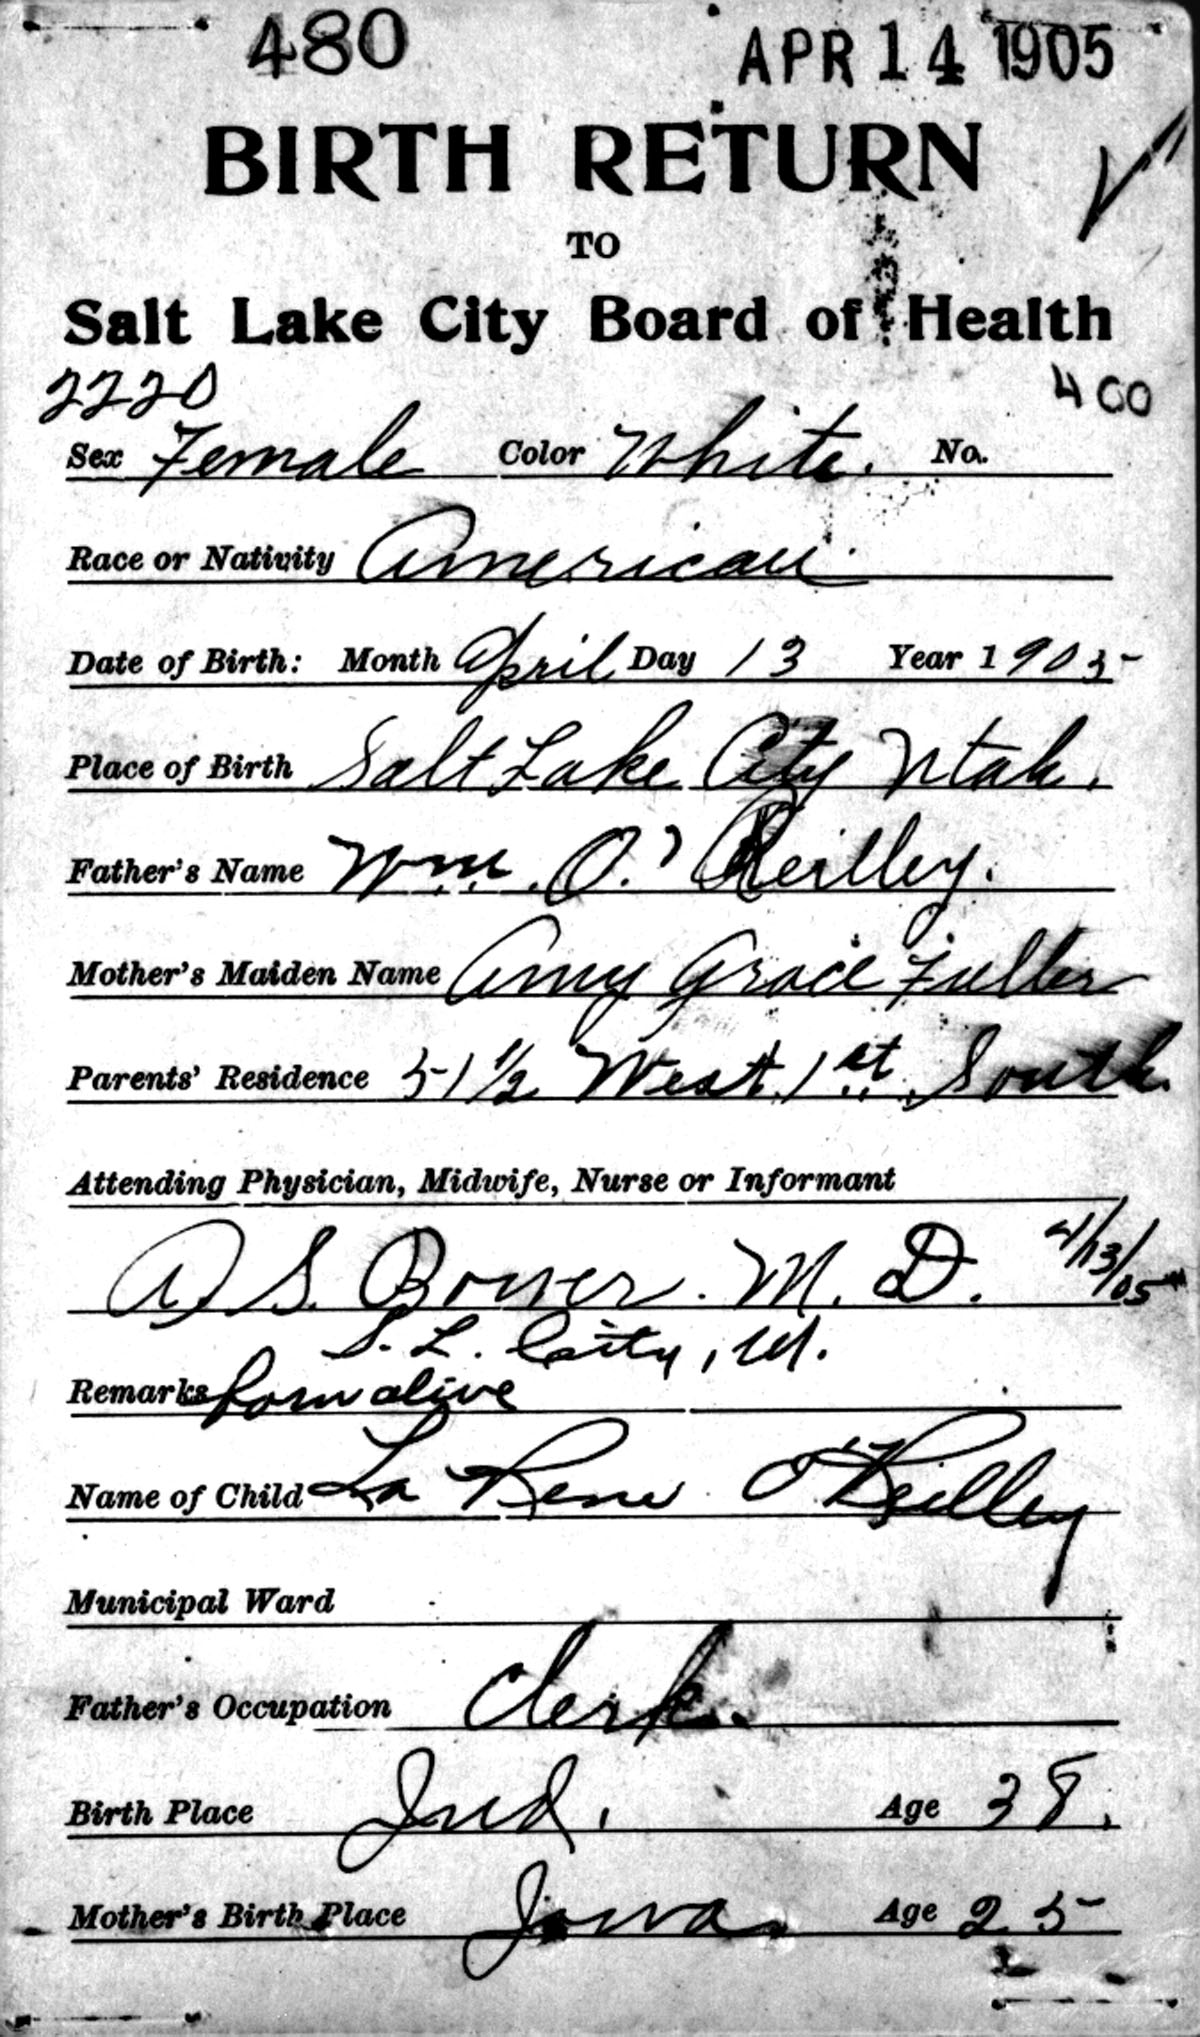 480 APR 14 1905
BIRTH RETURN
TO
Salt Lake City Board of Health
2220 400
Sex Female Color White. No.
Race or Nativity American
Date of Birth: Month April Day 13 Year 1905
Place of Birth Salt Lake City Utah.
Father's Name Wm. O.' Reilley.
Mother's Maiden Name Amy Grace Fuller
Parents' Residence 51 1/2 West 1st South
Attending Physician, Midwife, Nurse or Informant
A S. Bower. M. D. 4/13/05
S. L. City, Ut.
Remarks born alive
Name of Child La Rene O'Reilley
Municipal Ward
Father's Occupation Clerk.
Birth Place Ind. Age 38.
Mother's Birth Place Iowa Age 25